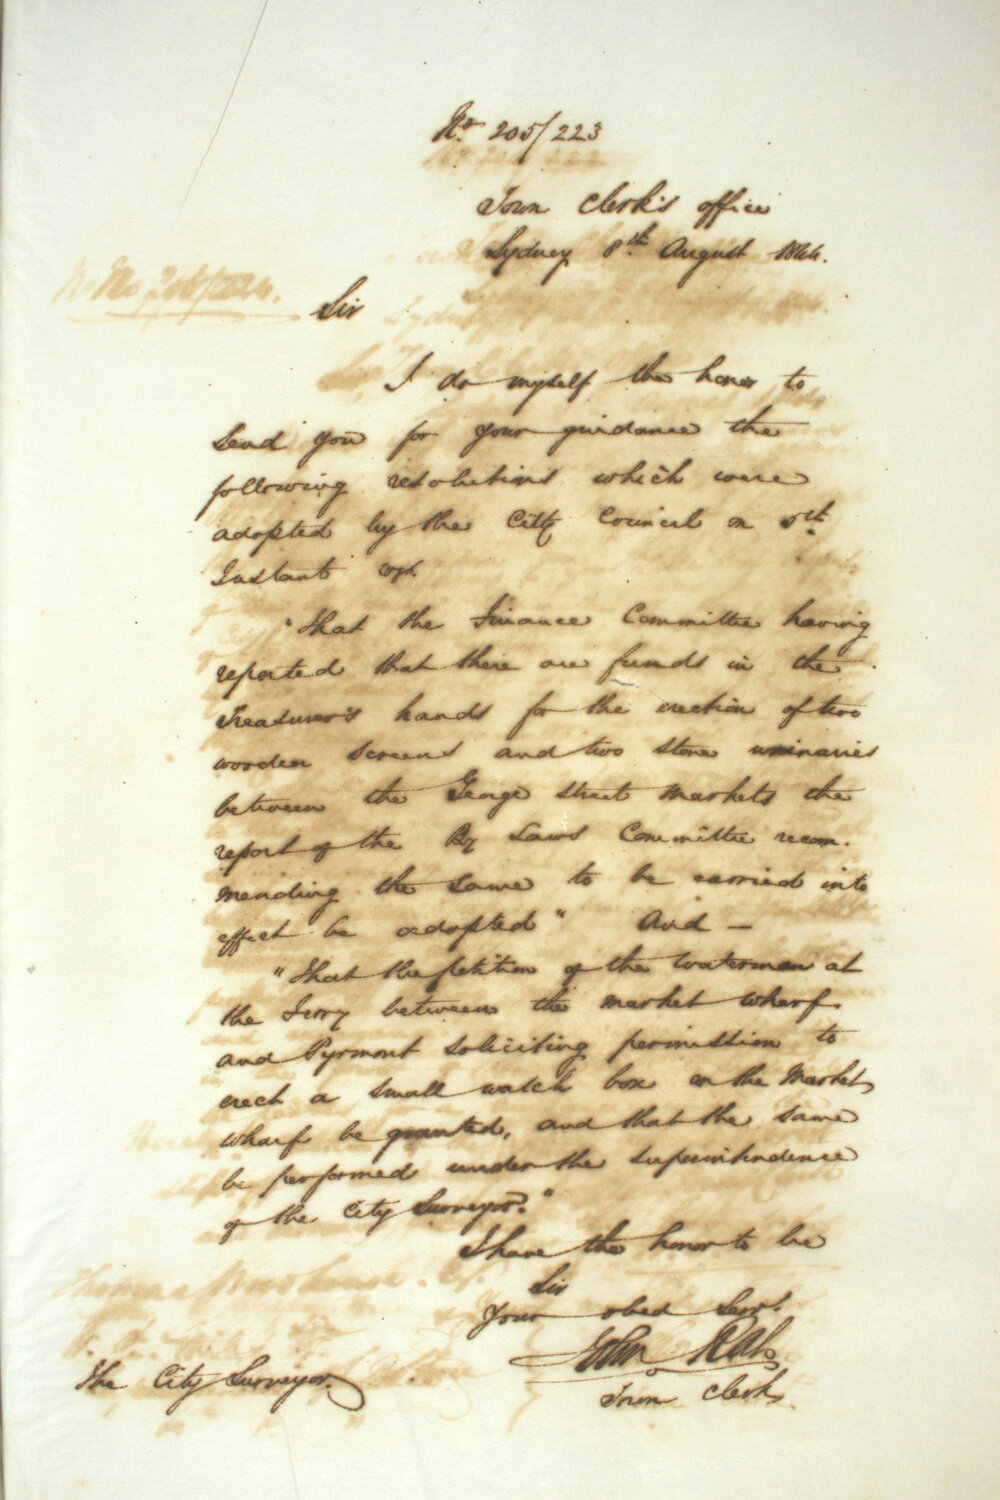 No. 205/223
Town Clerk's office
Sydney 8th August 1844.
Sir
I do myself the honor to
send you for your guidance the
following resolutions which were
adopted by the City Council on 5th
Instant viz.
"That the Finance Committee having
reported that there are funds in the
Treasurer's hands for the erection of two
wooden screens and two stone urinaries
between the George street Markets the
report of the By Laws Committee recom-
mending the same to be carried into
effect be adopted" And —
"That the petition of the waterman at
the Ferry between the market wharf
and Pyrmont soliciting permission to
erect a small watch box on the Market
wharf be granted, and that the same
be performed under the superintendence
of the City Surveyor."
I have the honor to be
Sir
Your obed Servt.
John Rae
Town Clerk.
The City Surveyor.